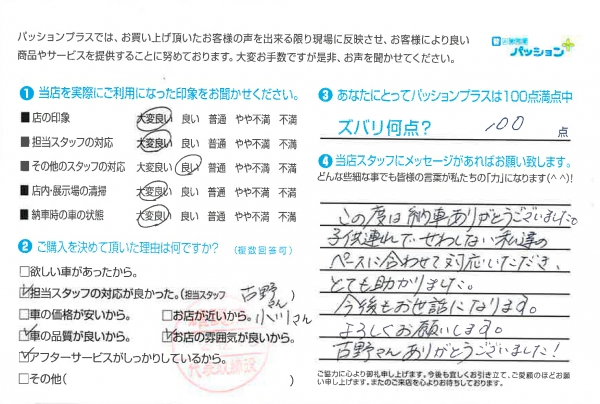 パッションプラスでは、お買い上げ頂いたお客様の声を出来る限り現場に反映させ、お客様により良い
商品やサービスを提供することに努めております。大変お手数ですが是非、お声を聞かせてください。
パッション
1 当店を実際にご利用になった印象をお聞かせください。
■店の印象 大変良い 良い 普通 やや不満 不満
■担当スタッフの対応 大変良い 良い 普通 やや不満 不満
■その他のスタッフの対応 大変良い 良い 普通 やや不満 不満
■店内・展示場の清掃 大変良い 良い 普通 やや不満 不満
■納車時の車の状態 大変良い 良い 普通 やや不満 不満
2 ご購入を決めて頂いた理由は何ですか? (複数回答可)
□欲しい車があったから。
☑担当スタッフの対応が良かった。(担当スタッフ 吉野さん 小川さん)
□車の価格が安いから。 □お店が近いから。
☑車の品質が良いから。 ☑お店の雰囲気が良いから。
☑アフターサービスがしっかりしているから。
□その他( )
3 あなたにとってパッションプラスは100点満点中
ズバリ何点? 100 点
4 当店スタッフにメッセージがあればお願い致します。
どんな些細な事でも皆様の言葉が私たちの「力」になります(^^)!
この度は納車ありがとうございました。
子供連れでせわしない私達の
ペースに合わせて対応いただき、
とても助かりました。
今後もお世話になります。
よろしくお願いします。
吉野さんありがとうございました!
ご協力に心より御礼申し上げます。今後も宜しくお引き立て、ご愛顧のほどお願
い申し上げます。またのご来店を心よりお待ちしております。